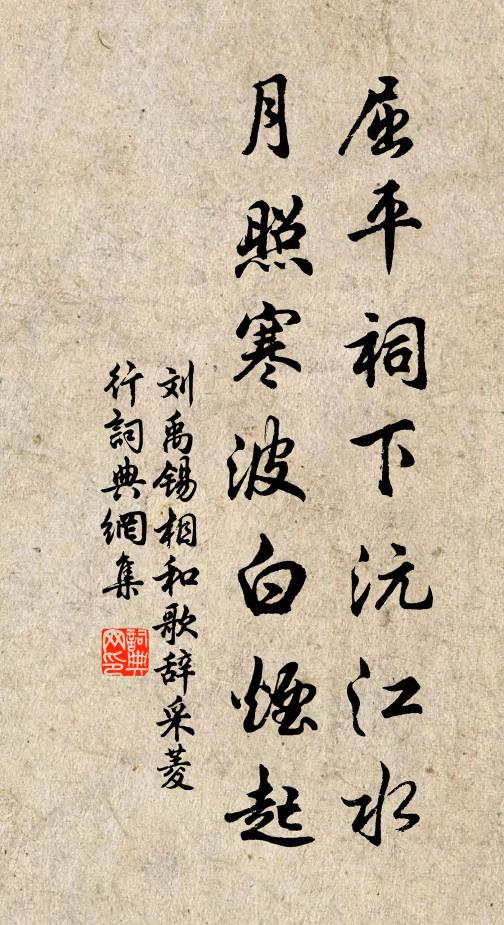 屈平祠下沅江水
月照寒波白煙起
刘禹锡相和歌辞采菱
行詞典網集
詞典
网印